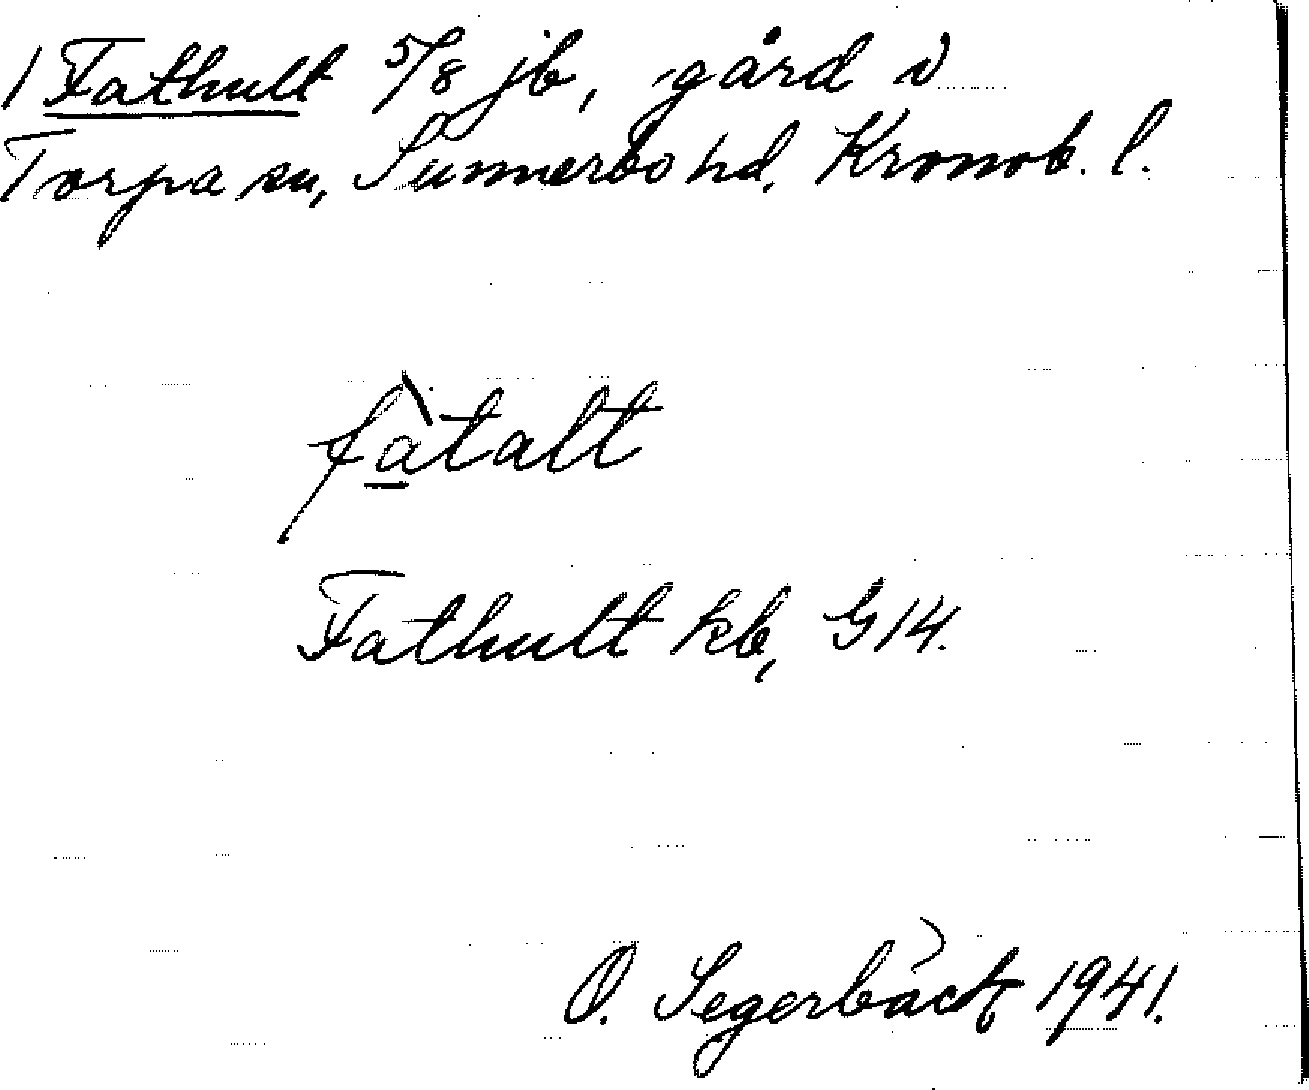 1 Fathult 5/8 jb, gård i
Torpa sn, Sunnerbo hd, Kronob. l.
fà̲talt
Fathult kb, G 14.
O. Segerbäck 1941.